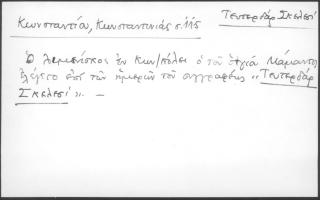 Κωνσταντίου, Κωνσταντινιάς σ. 115
Τευτερδάρ Σκελεσί
Ὁ λιμενίσκος ἐν Κων/πόλει ὁ τοῦ Ἁγίου Μάμαντος
ἐλέγετο ἐπὶ τῶν ἡμερῶν τοῦ συγγραφέως "Τευτερδάρ
Σκελεσί". —